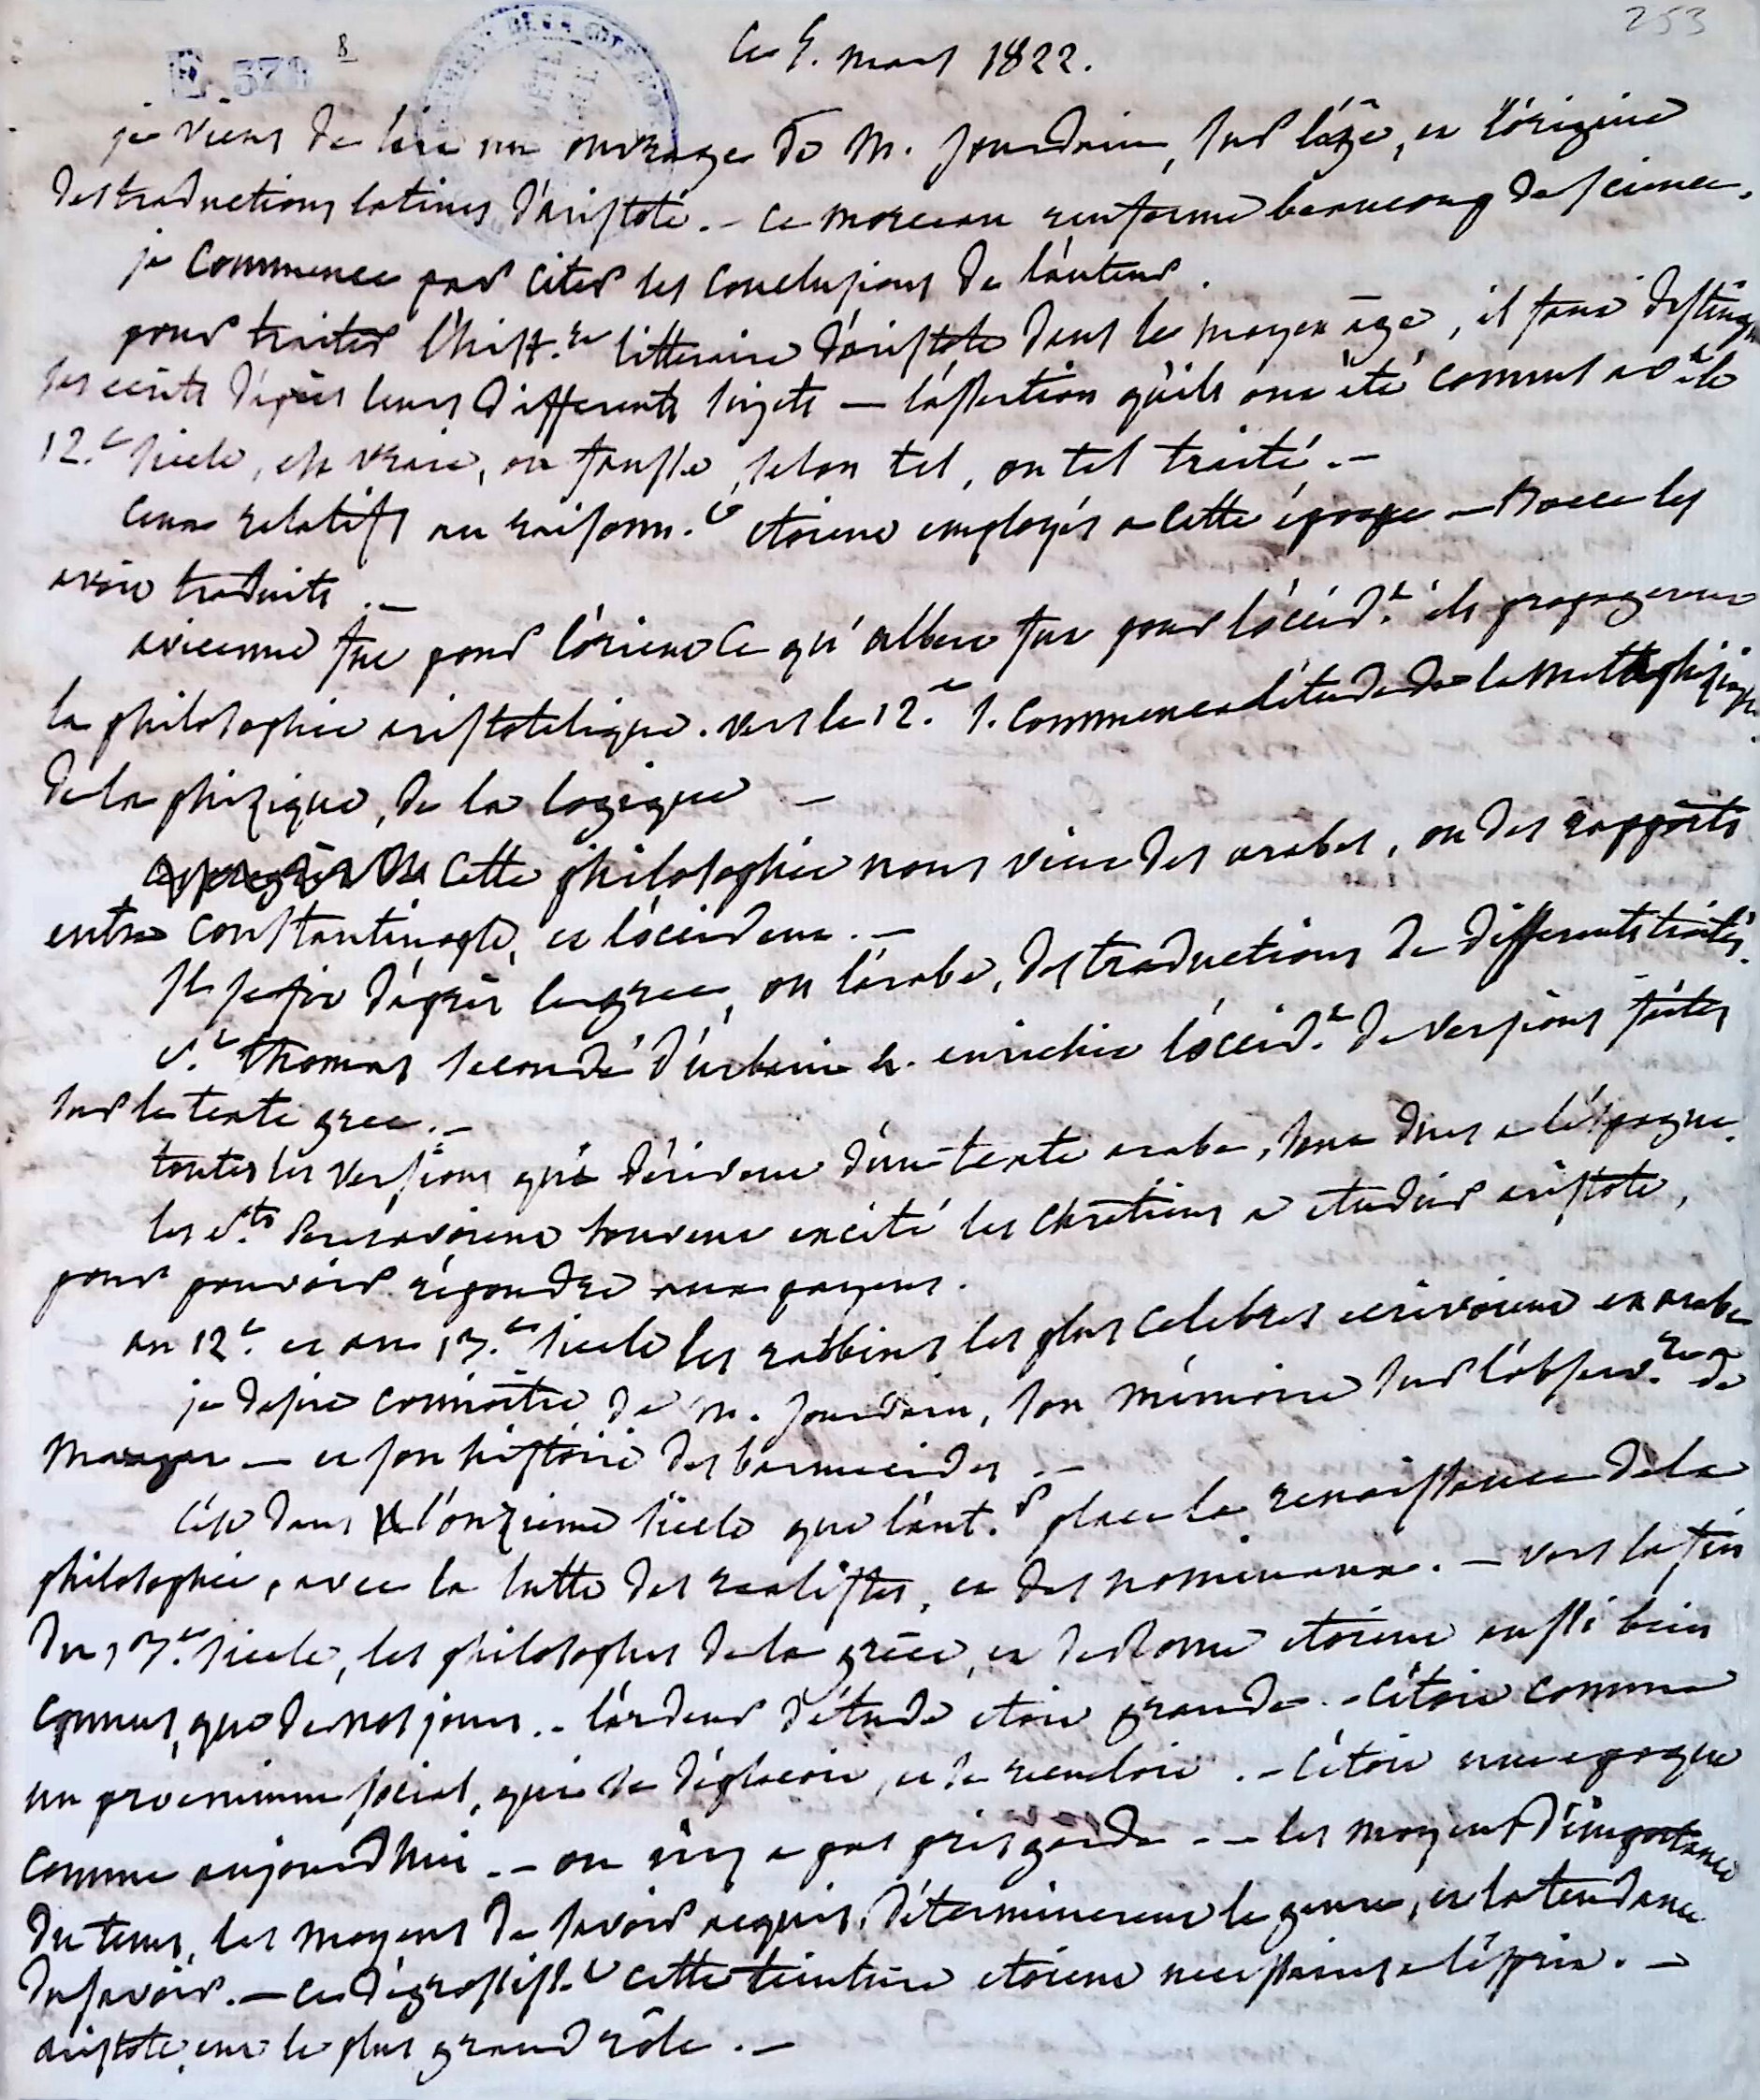 253
E 579 8
Ce 5. mars 1822.
je viens de lire un ouvrage de M. Jourdain, sur l'âge, et l'origine
des traductions latines d'aristote. - ce morceau renferme beaucoup de science.
je commence par citer les conclusions de l'auteur.
pour traiter l'hist.re litteraire d'aristote dans le moyen âge, il faut disting
ses ecrits d'après leurs differents sujets — l'assertion qu'ils ont été connus av.t le
12.e siecle, est vraie, ou fausse, selon tel, ou tel traité. -
Ceux relatifs au raisonn.t etoient employés a cette époque - Boece les
avoit traduits. -
avicenne fut pour l'orient ce qu'albert fut pour l'occid.t ils propagerent
la philosophie aristotelique. vers le 12.e s. commença l'étude de la metaphizique
de la phizique, de la logique -
cette philosophie nous vint des arabes, ou des rapports
entre constantinople, et l'occident. -
Il se fit d'après le grec, ou l'arabe, des traductions de differents traités.
S.t thomas secondé d'urbain 4. enrichit l'occid.t de versions faites
sur le texte grec. -
toutes les versions qui dérivent d'un texte arabe, sont dues a l'éspagne.
les S.ts Peres avoient souvent excité les chrétiens a etudier aristote,
pour pouvoir répondre aux payens.
au 12.e et au 13.e siecle les rabbins les plus celebres ecrivoient en arabe
je desire connoître de M. Jourdain, son mémoire sur l'observ.re de
Maragar — et son histoire des barmecides. -
C'est dans l'onzieme siecle que l'aut.r place la renaissance de la
philosophie, avec la lutte des realistes, et des nominaux. - vers la fin
du 13.e siecle, les philosophes de la grèce, et de Rome etoient aussi bien
connus, que de nos jours. - l'ardeur d'étude etoit grande. - c'étoit comme
un proscenium social, qui se déplaçoit, et se reculoit. - c'étoit une epoque
comme aujourd'hui. - on n'y a pas pris garde. - les moyens d'importance
du tems, les moyens de savoir acquis, déterminerent le genre, et la tendance
du savoir. — ce dégrossiss.t cette teinture etoient necessaires a l'ésprit. -
aristote, eut le plus grand rôle. -